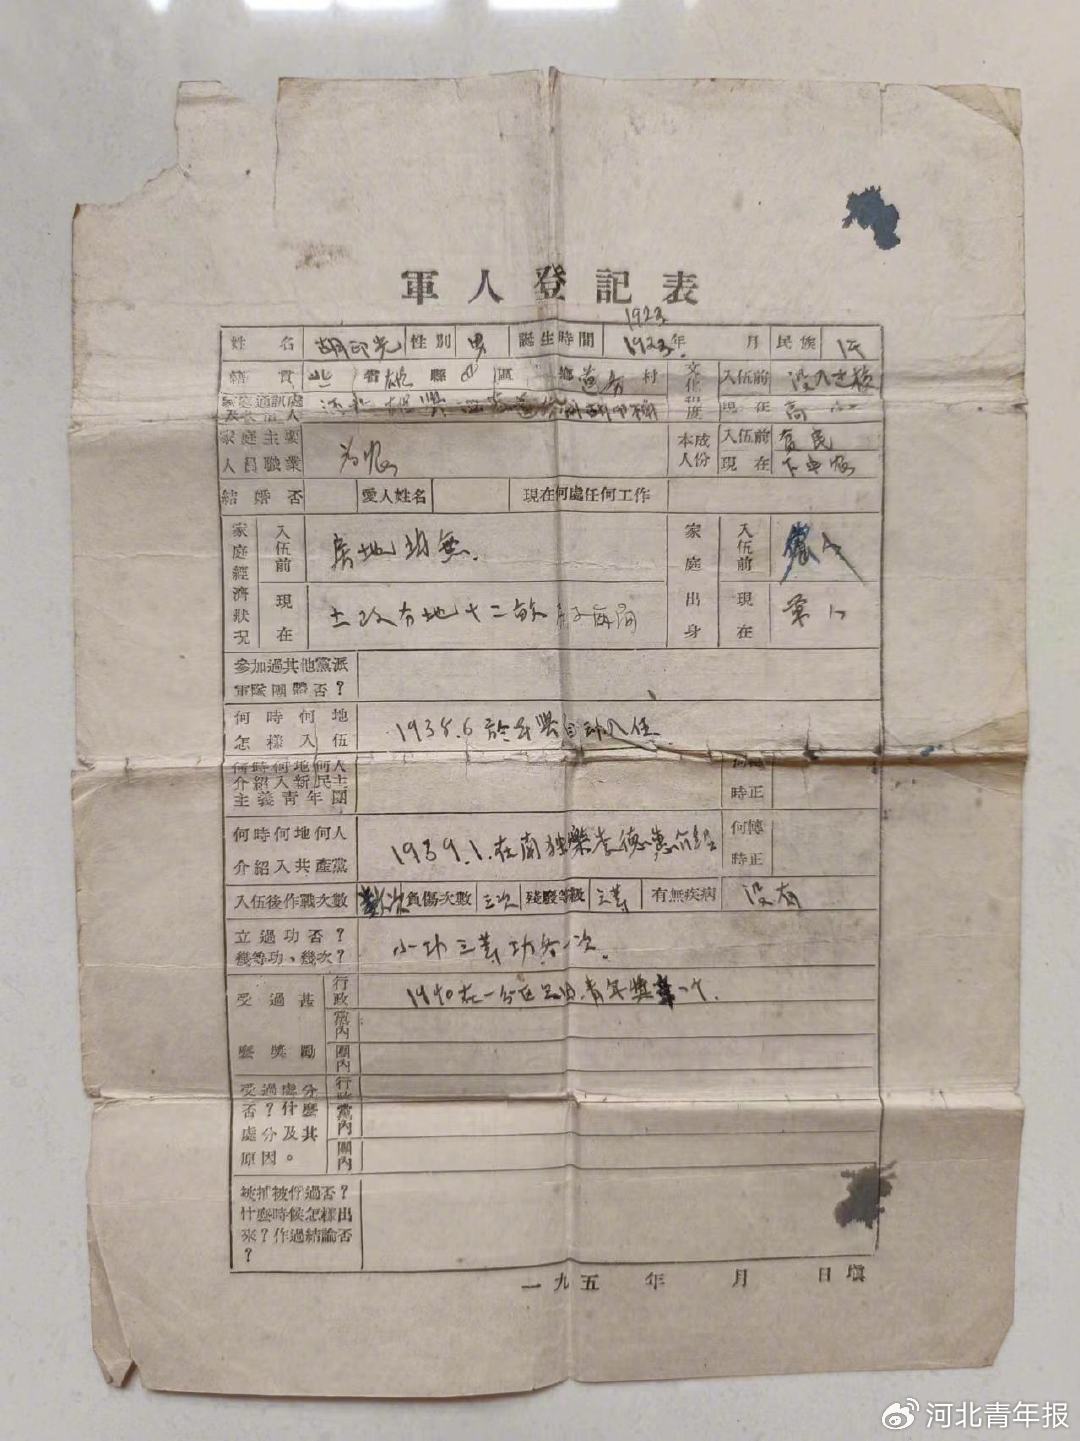 軍人登記表
1923
姓名 胡印先 性別 男 誕生時間 1923年 月 民族
籍貫 省雄縣 區 鄉 村 文化程度 入伍前 没入过校
家庭通訊處 河北 雄 現在 高小
家庭主要人員職業 为农 本人成份 入伍前 貧民
現在 下中农
結婚否 愛人姓名 現在何處任何工作
家庭經濟狀況 入伍前 房地均無. 家庭出身 入伍前 農人
現在 土改分地十二畝 房子兩间 現在
參加過其他黨派軍隊團體否?
何時何地怎樣入伍 1938.6
何時何地何人介紹入新民主主義青年團 何時轉正
何時何地何人介紹入共產黨 1939.1.在南独樂李德惠介绍 何時轉正
入伍後作戰次數 負傷次數 三次 殘廢等級 三等 有無疾病 没有
立過功否?幾等功、幾次? 小功三等功各一次.
受過甚麼獎勵 行政 1940在一分區 青年獎章一个.
黨內
團內
受過處分否?什麼處分及其原因。 行政
黨內
團內
被捕被俘過否?什麼時候怎樣出來?作過結論否?
一九五 年 月 日填
河北青年报